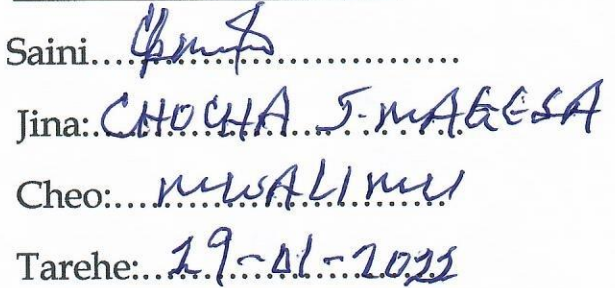 Saini..............................
Jina: CHOCHA J. MAGESA
Cheo: MWALIMU
Tarehe: 29-01-2022